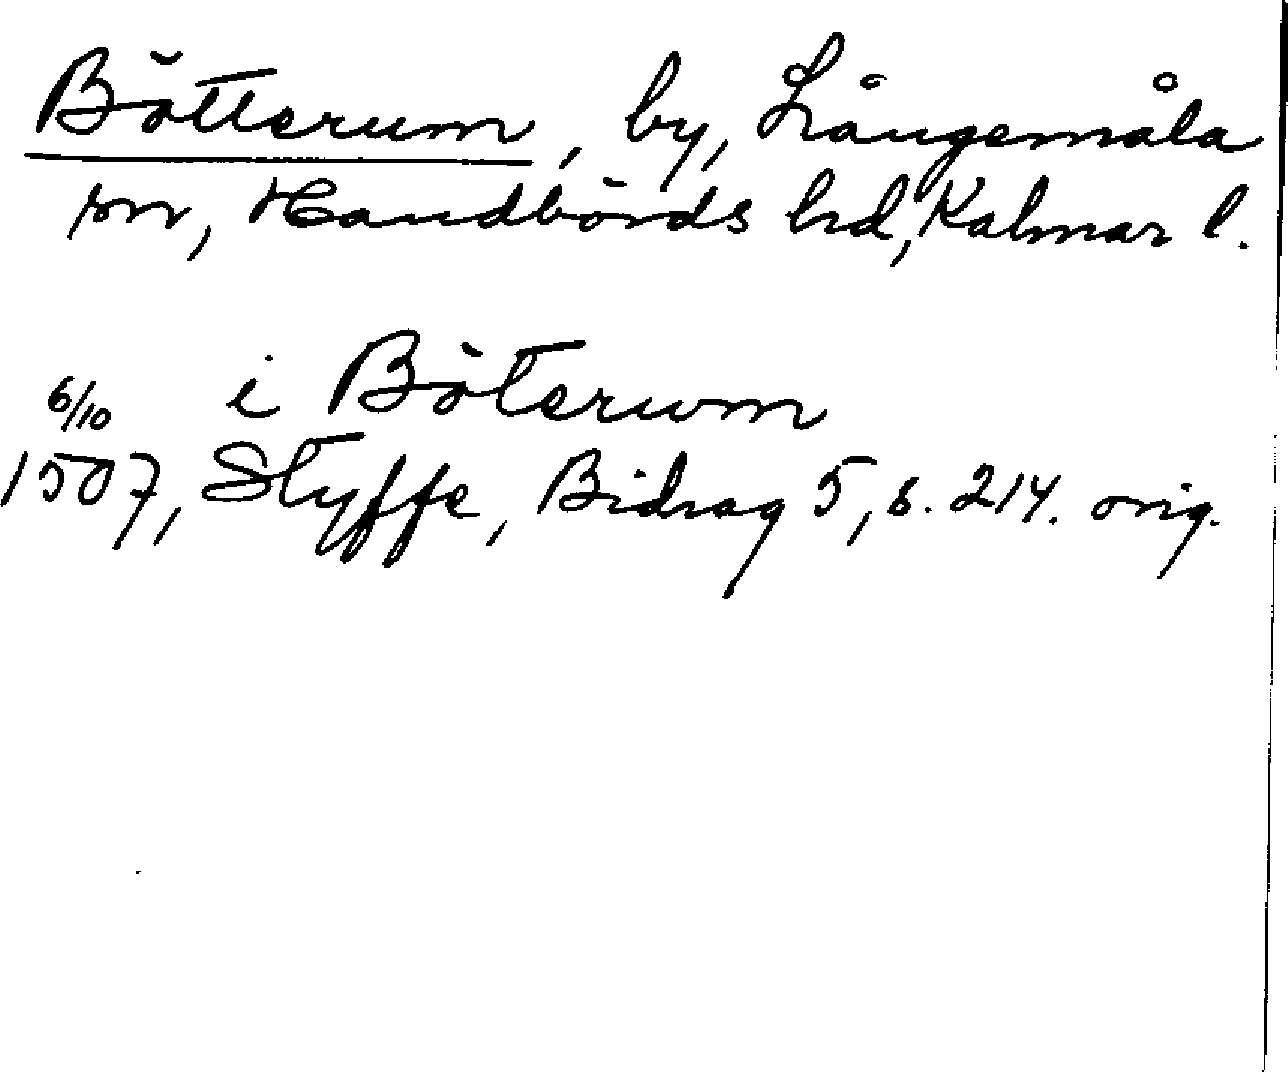 Bötterum, by, Långemåla
sn, Handbörds hd, Kalmar l.
i Böterwm
6/10
1507, Styffe, Bidrag 5, s. 214. orig.